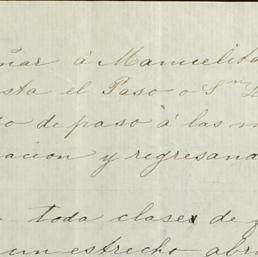 ñar á Manuelita
sta el Paso o Sn
o de paso á las m
acion y regresan
toda clase de
un estrecho abr